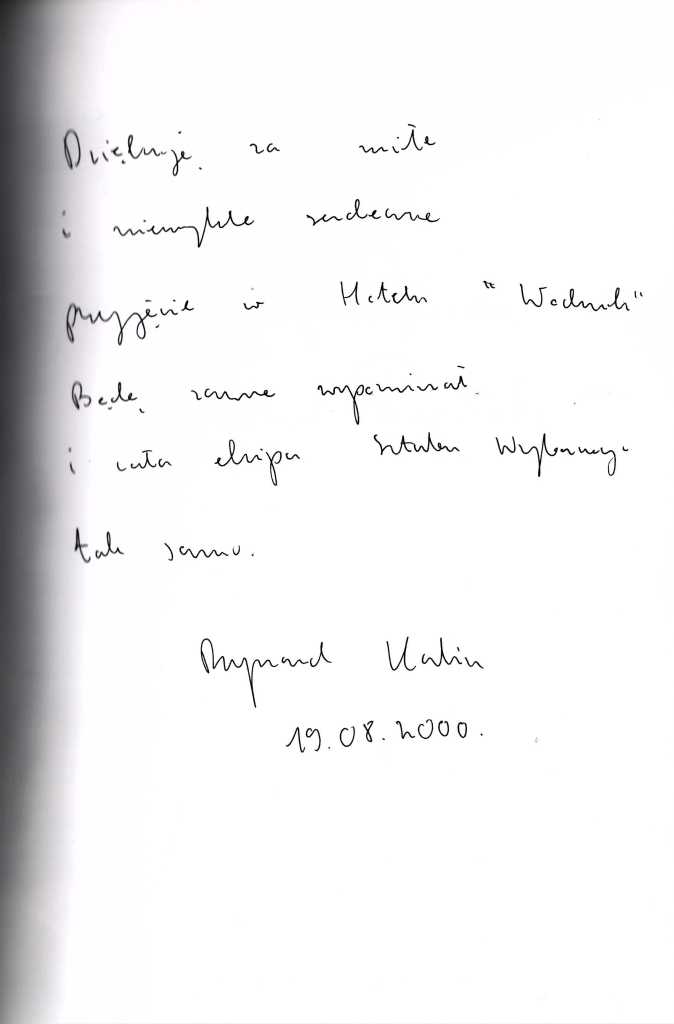 Dziękuję za miłe
i niezwykle serdeczne
przyjęcie w Hotelu "Wodnik"
Będę zawsze wspominał
i cała ekipa Sztabu Wyborczego
tak samo.
Ryszard Kalisz
19.08.2000.